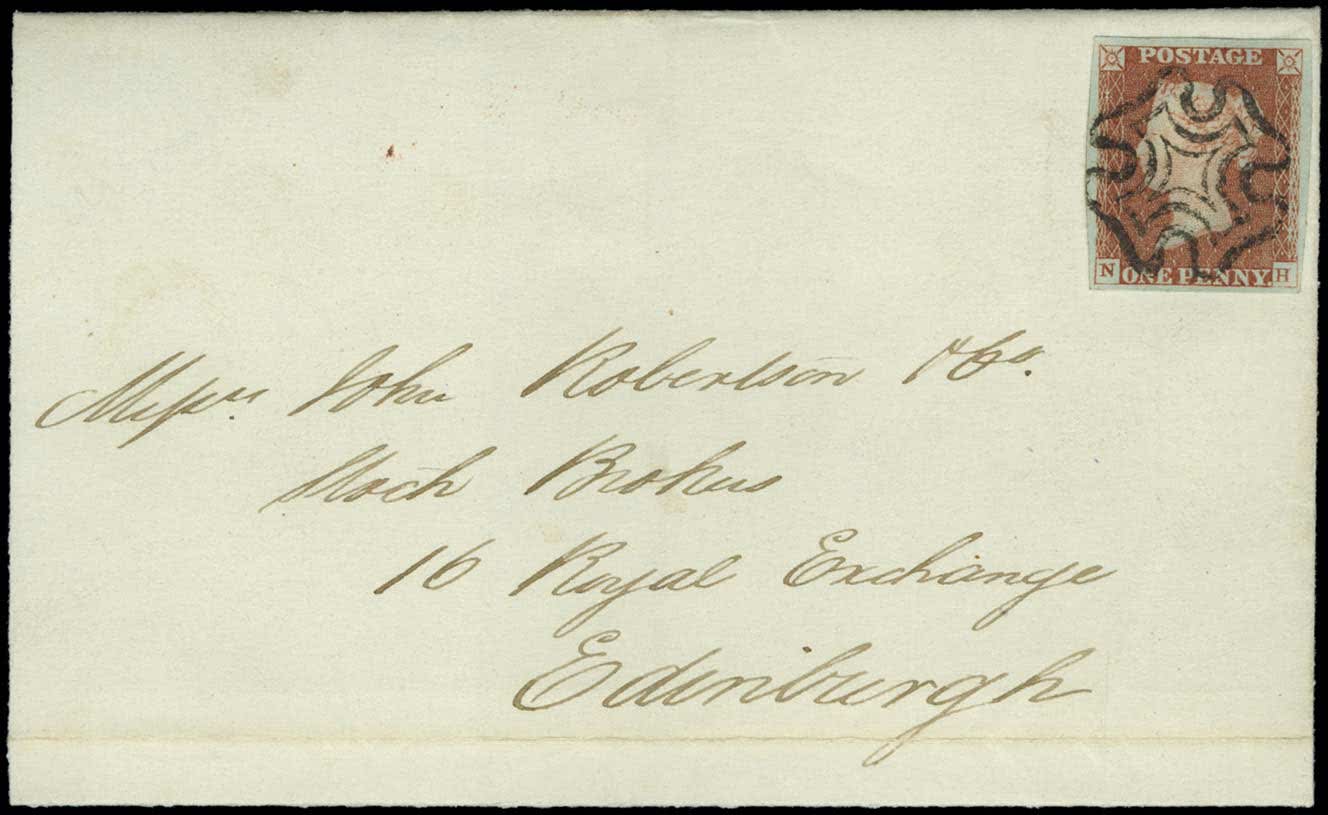 POSTAGE
N ONE PENNY. H
Messrs John Robertson & Co.
Stock Brokers
16 Royal Exchange
Edinburgh